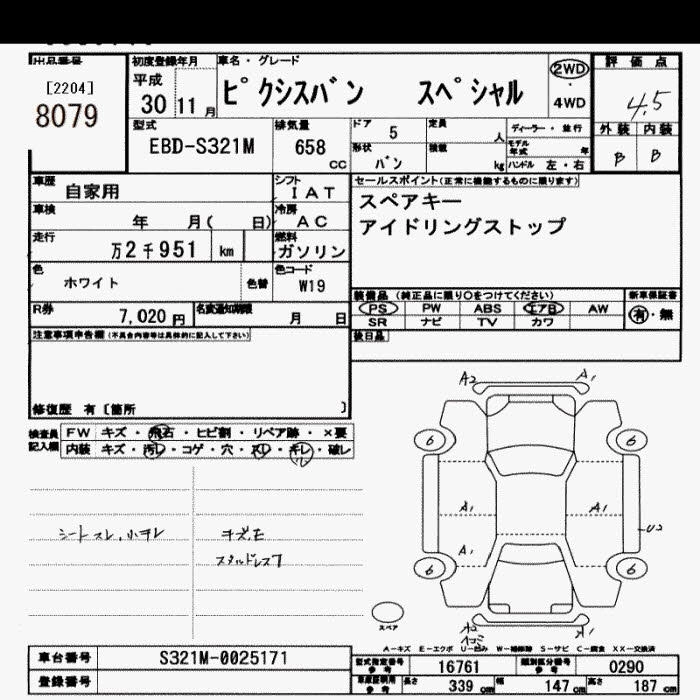 出品番号
[2204]
8079
初度登録年月
平成
30 11 月
車名・グレード
ピクシスバン スペシャル
2WD
・
4WD
評価点
4.5
外装 内装
B B
型式
EBD-S321M
排気量
658
CC
ドア
5
定員
人
形状
バン
積載
kg
ディーラー・並行
モデル年式 年
ハンドル 左・右
車歴
自家用
シフト
IAT
セールスポイント(正常に機能するものに限ります)
スペアキー
アイドリングストップ
車検
年 月( 日)
冷房
AC
走行
万2千951 km
燃料
ガソリン
色
ホワイト
色替
色コード
W19
装備品 (純正品に限り○をつけてください)
PS PW ABS エアB AW
SR ナビ TV カワ
新車保証書
有・無
R券
7,020 円
名変通知期限
月 日
後日品
注意事項申告欄(不具合内容等は具体的に記入して下さい)
修復歴 有〔箇所 〕
検査員
記入欄
FW キズ・飛石・ヒビ割・リペア跡・×要
内装 キズ・汚レ・コゲ・穴・スレ・キレ・破レ
シートスレ、小キレ
キズ、E
スタッドレス7
A2 A1
6 6
A1 A1
U2
A1
6 6
A2 A1
スペア
A-キズ E-エクボ U-凹み W-補修跡 S-サビ C-腐食 XX-交換済
車台番号
S321M-0025171
登録番号
型式指定番号
参考
16761
類別区分番号
参考
0290
車庫証明用
参考
長さ
339 cm
幅
147 cm
高さ
187 cm